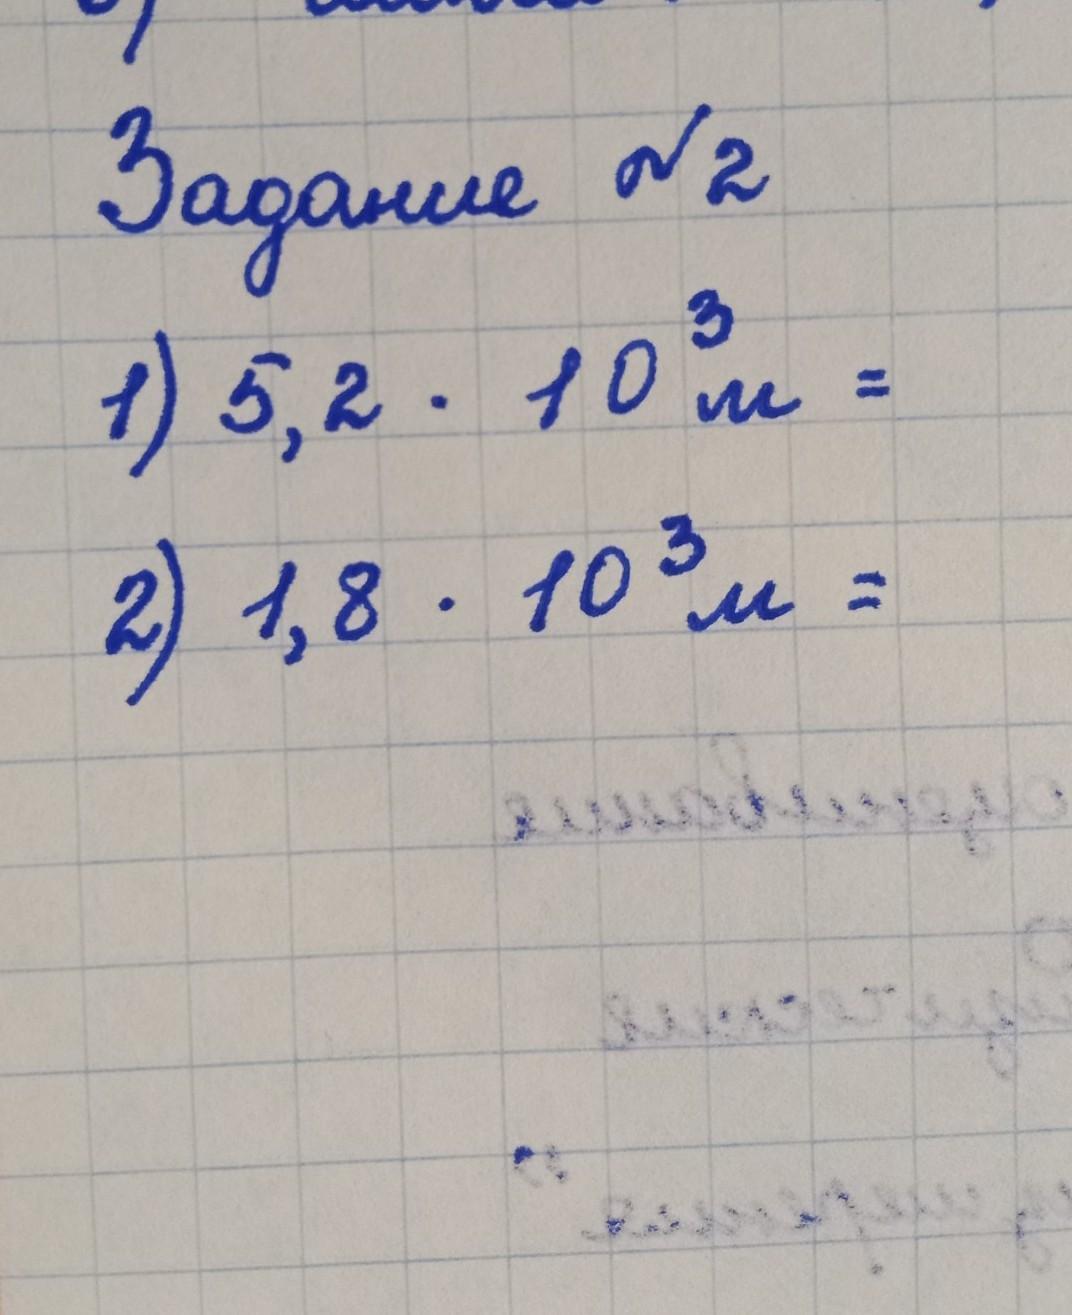 Задание №2
1) 5,2 · 10³ м =
2) 1,8 · 10³ м =